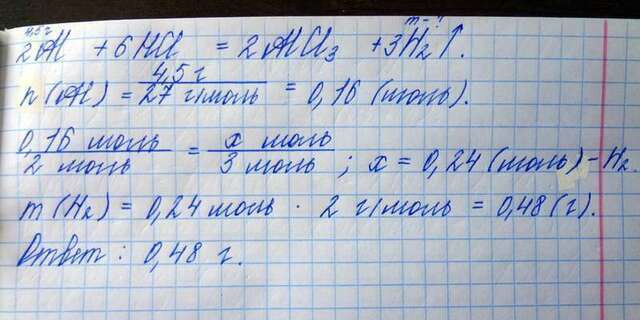 4,5 г m - ?
2Al + 6HCl = 2AlCl₃ + 3H₂↑.
n(Al) = 4,5 г / 27 г/моль = 0,16 (моль).
0,16 моль / 2 моль = x моль / 3 моль ; x = 0,24 (моль) - H₂.
m(H₂) = 0,24 моль · 2 г/моль = 0,48 (г).
Ответ: 0,48 г.